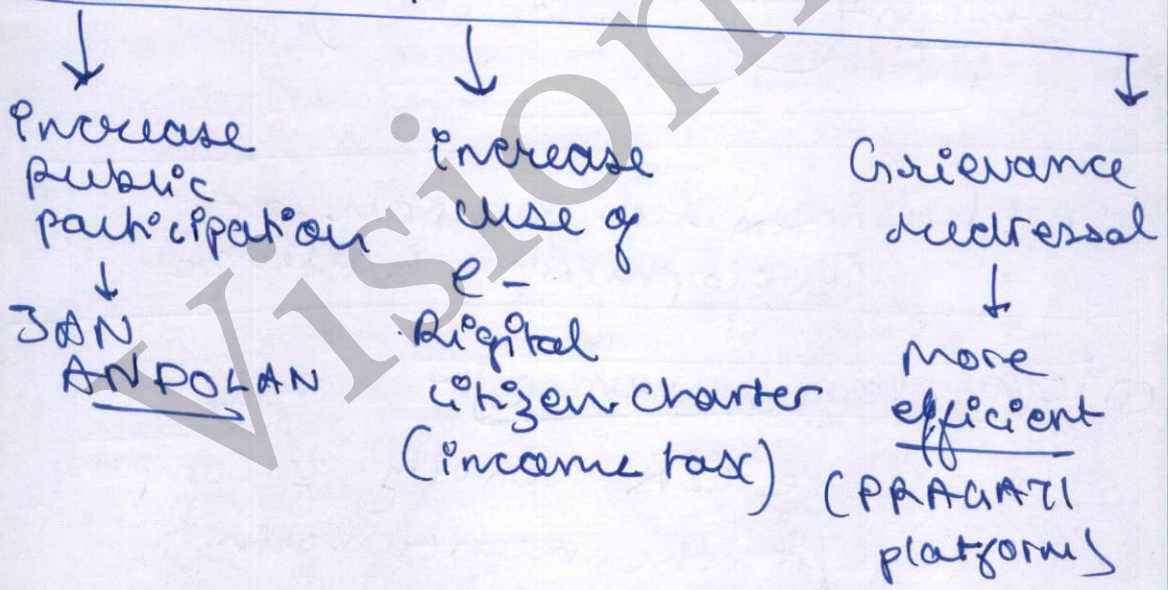 increase
public
participation
JAN
ANDOLAN
increase
use of
e-
Digital
citizen charter
(income tax)
Grievance
redressal
more
efficient
(PRAGATI
platform)
Vision